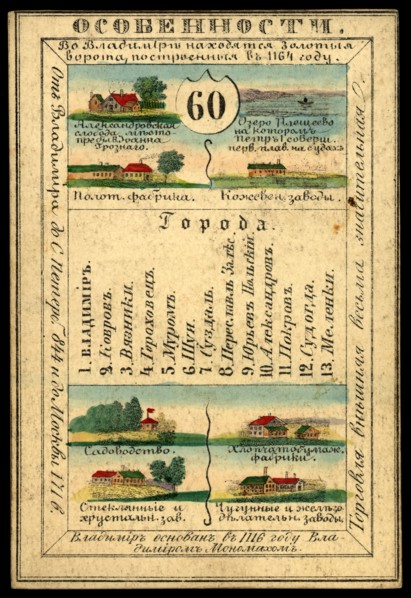 ОСОБЕННОСТИ.
Во Владимірѣ находятся Золотыя
ворота, построенныя въ 1164 году.
60
Александровская
слобода, мѣсто-
пребыв. Іоанна
Грознаго.
Озеро Плещеево
на которомъ
Петръ I соверш.
перв. плав. на судахъ
Полот. фабрика.
Кожевен. заводы.
Отъ Владиміра до С. Петерб. 784 и до Москвы 171 в.
Города.
1. ВЛАДИМІРЪ.
2. Ковровъ.
3. Вязники.
4. Гороховецъ.
5. Муромъ.
6. Шуя.
7. Суздаль.
8. Переславль Залѣс.
9. Юрьевъ Польскій.
10. Александровъ.
11. Покровъ.
12. Судогда.
13. Меленки.
Торговля внѣшняя весьма значительная.
Садоводство.
Хлопчатобумаж.
фабрики.
Стеклянные и
хрустальн. зав.
Чугунные и желѣзо-
дѣлательн. заводы.
Владиміръ основанъ въ 1116 году Вла-
диміромъ Мономахомъ.